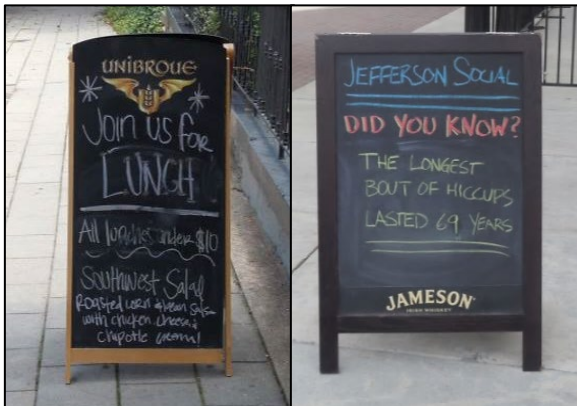 UNIBROUE
Join us for
LUNCH
All lunches under $10
Southwest Salad
Roasted corn & bean salsa
with chicken, cheese &
chipotle cream!
JEFFERSON SOCIAL
DID YOU KNOW?
THE LONGEST
BOUT OF HICCUPS
LASTED 69 YEARS
JAMESON
IRISH WHISKEY